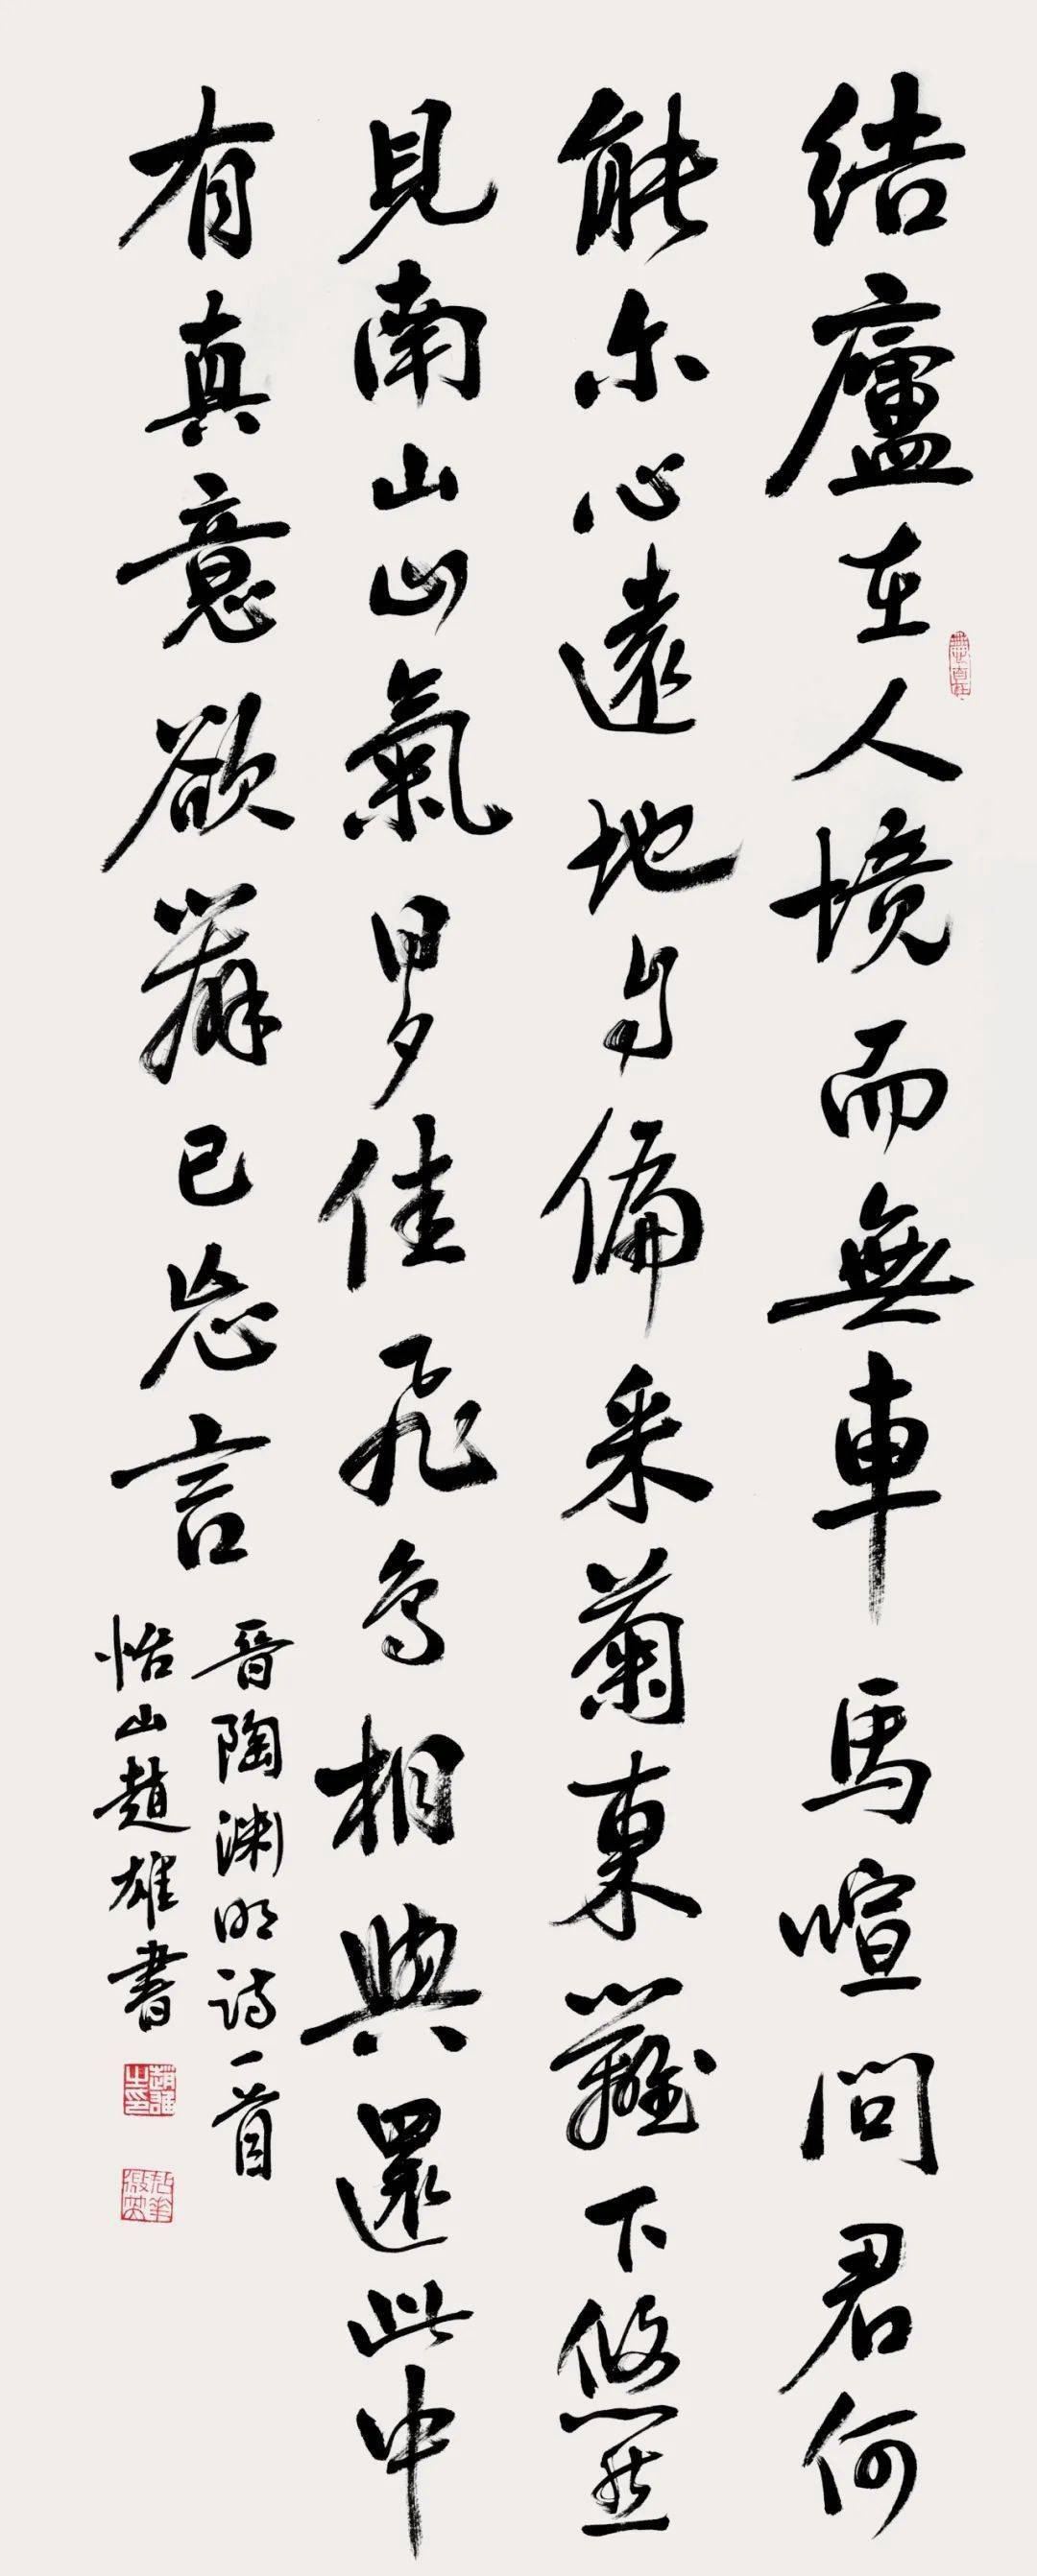 結廬在人境而無車馬喧問君何
能尔心遠地自偏采菊東籬下悠然
見南山山氣日夕佳飛鳥相與還此中
有真意欲辨已忘言
晋陶渊明詩一首
怡山趙雄書
趙雄之印